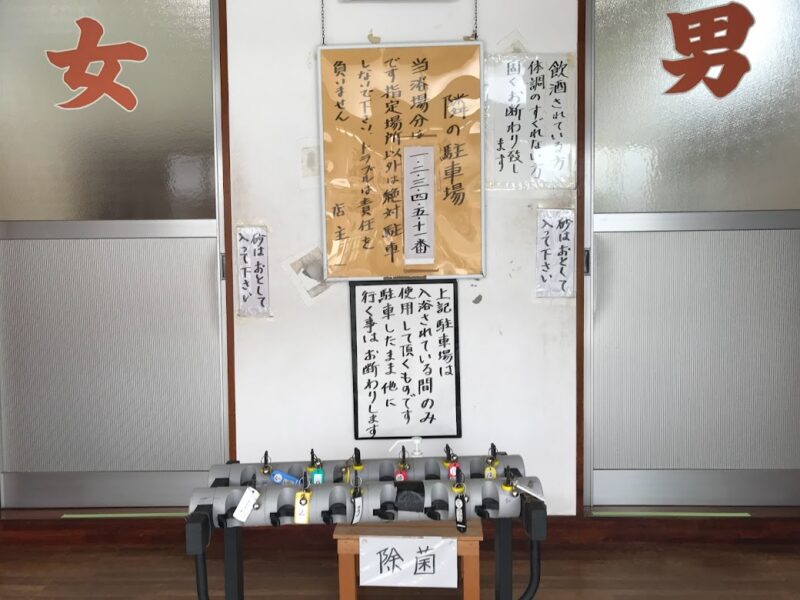 女
男
隣の駐車場
当浴場分は
一・二・三・四・五・十一番
です指定場所以外は絶対駐車
しないで下さい、トラブルは責任を
負いません
店主
飲酒されている方
体調のすぐれない方
固くお断わり致し
ます
砂はおとして
入って下さい
砂はおとして
入って下さい
上記駐車場は
入浴されている間のみ
使用して頂くものです
駐車したまま他に
行く事はお断わりします
除菌